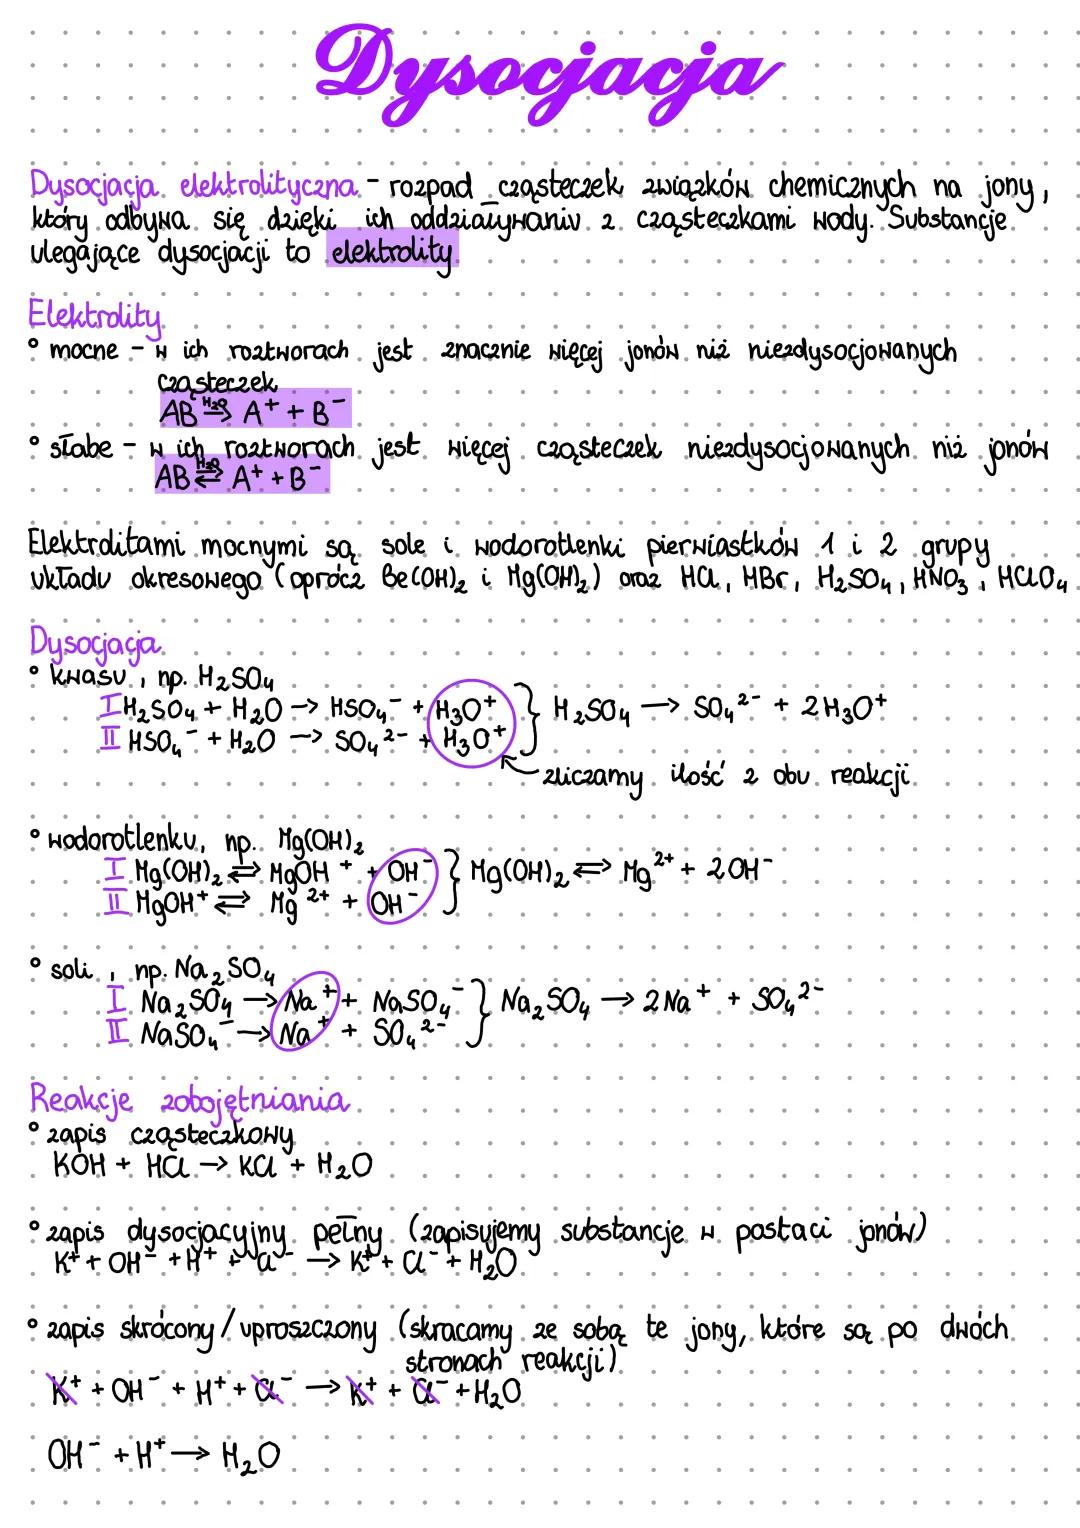 Dysocjacja
Dysocjacja elektrolityczna - rozpad cząsteczek związków chemicznych na jony,
który odbywa się dzięki ich oddziaływaniu z cząsteczkami wody. Substancje
ulegające dysocjacji to elektrolity.
Elektrolity
° mocne - w ich roztworach jest znacznie więcej jonów niż niezdysocjowanych
cząsteczek
AB ⇒ᴴ²ᴼ A⁺ + B⁻
° słabe - w ich roztworach jest więcej cząsteczek niezdysocjowanych niż jonów
AB ⇄ᴴ²ᴼ A⁺ + B⁻
Elektrolitami mocnymi są sole i wodorotlenki pierwiastków 1 i 2 grupy
układu okresowego (oprócz Be(OH)₂ i Mg(OH)₂) oraz HCl, HBr, H₂SO₄, HNO₃, HClO₄.
Dysocjacja
° kwasu, np. H₂SO₄
I H₂SO₄ + H₂O → HSO₄⁻ + H₃O⁺ } H₂SO₄ → SO₄²⁻ + 2H₃O⁺
II HSO₄⁻ + H₂O → SO₄²⁻ + H₃O⁺
zliczamy ilość z obu reakcji
° wodorotlenku, np. Mg(OH)₂
I Mg(OH)₂ ⇄ MgOH⁺ + OH⁻ } Mg(OH)₂ ⇄ Mg²⁺ + 2OH⁻
II MgOH⁺ ⇄ Mg²⁺ + OH⁻
° soli, np. Na₂SO₄
I Na₂SO₄ → Na⁺ + NaSO₄⁻ } Na₂SO₄ → 2Na⁺ + SO₄²⁻
II NaSO₄⁻ → Na⁺ + SO₄²⁻
Reakcje zobojętniania
° zapis cząsteczkowy
KOH + HCl → KCl + H₂O
° zapis dysocjacyjny pełny (zapisujemy substancje w postaci jonów)
K⁺ + OH⁻ + H⁺ + Cl⁻ → K⁺ + Cl⁻ + H₂O
° zapis skrócony/uproszczony (skracamy ze sobą te jony, które są po dwóch
stronach reakcji)
K⁺ + OH⁻ + H⁺ + Cl⁻ → K⁺ + Cl⁻ + H₂O
OH⁻ + H⁺ → H₂O